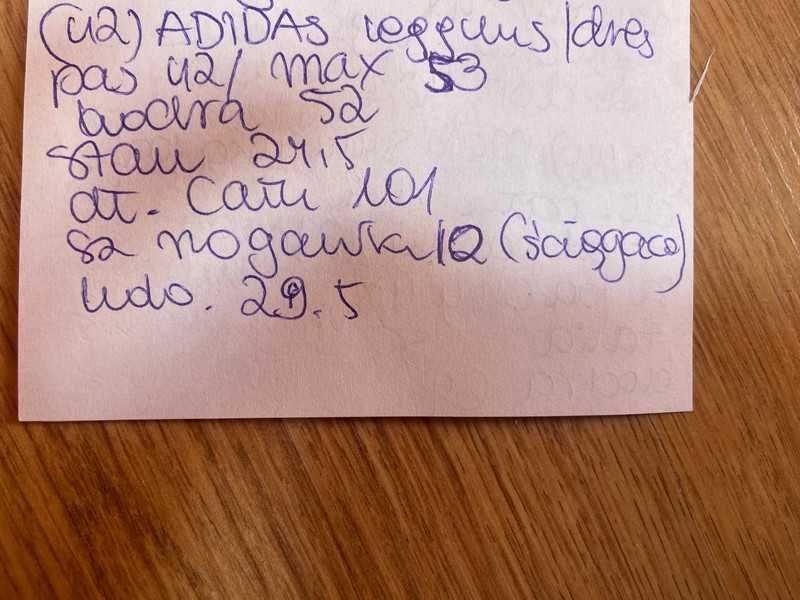 (42) ADIDAS leggins/dres
pas 42/ max 53
biodra 52
stan 24,5
dł. Całk 101
sz nogawka 12 (ściągacz)
udo. 29.5